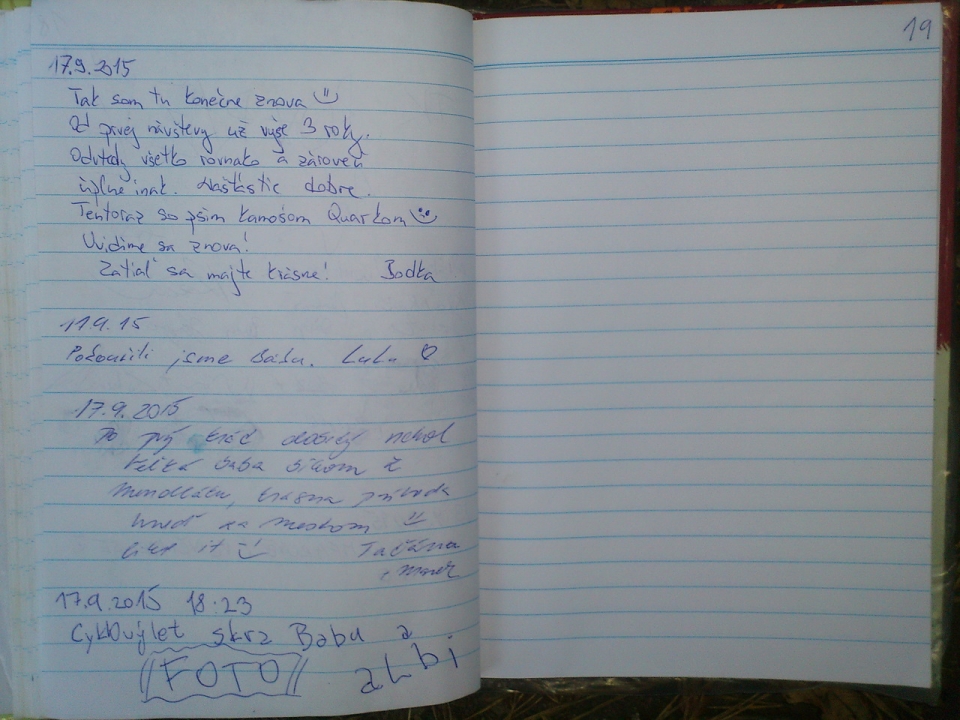 19
17.9.2015
Tak som tu konečne znova
Od prvej návštevy už vyše 3 roky.
Odvtedy všetko rovnako a zároveň
úplne inak. Našťastie dobre.
Tentoraz so psím kamošom Quarkom
Uvidíme sa znova!
Zatiaľ sa majte krásne! Bodka
17.9.15
jsme Babu.
17.9.2015
Po prvý krát dobitý
Veľká Baba
krásna príroda
hneď za mestom
like it
17.9.2015 18:23
Cyklovýlet skrz Babu a
FOTO albi